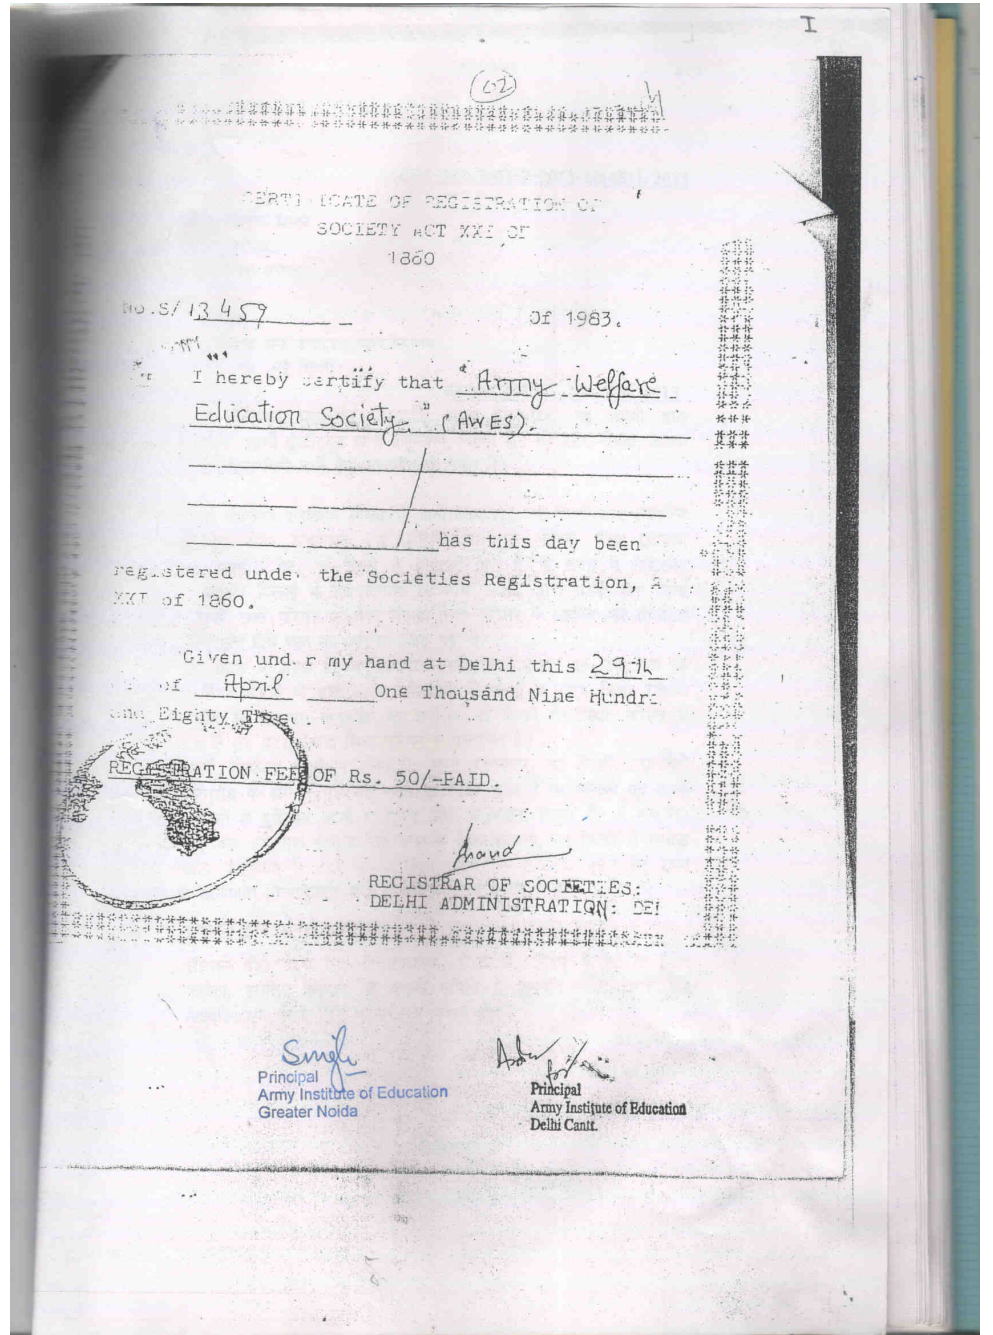 I
02
CERTIFICATE OF REGISTRATION OF
SOCIETY ACT XXI OF
1860
No.S/ 13459 Of 1983.
I hereby certify that "Army Welfare
Education Society" (AWES).
has this day been
registered under the Societies Registration, A
XXI of 1860.
Given und r my hand at Delhi this 29th
of April One Thousand Nine Hundre
and Eighty Three
REGISTRATION FEE OF Rs. 50/-PAID.
REGISTRAR OF SOCIETIES:
DELHI ADMINISTRATION: DEL
Singh
Principal
Army Institute of Education
Greater Noida
for
Principal
Army Institute of Education
Delhi Cantt.